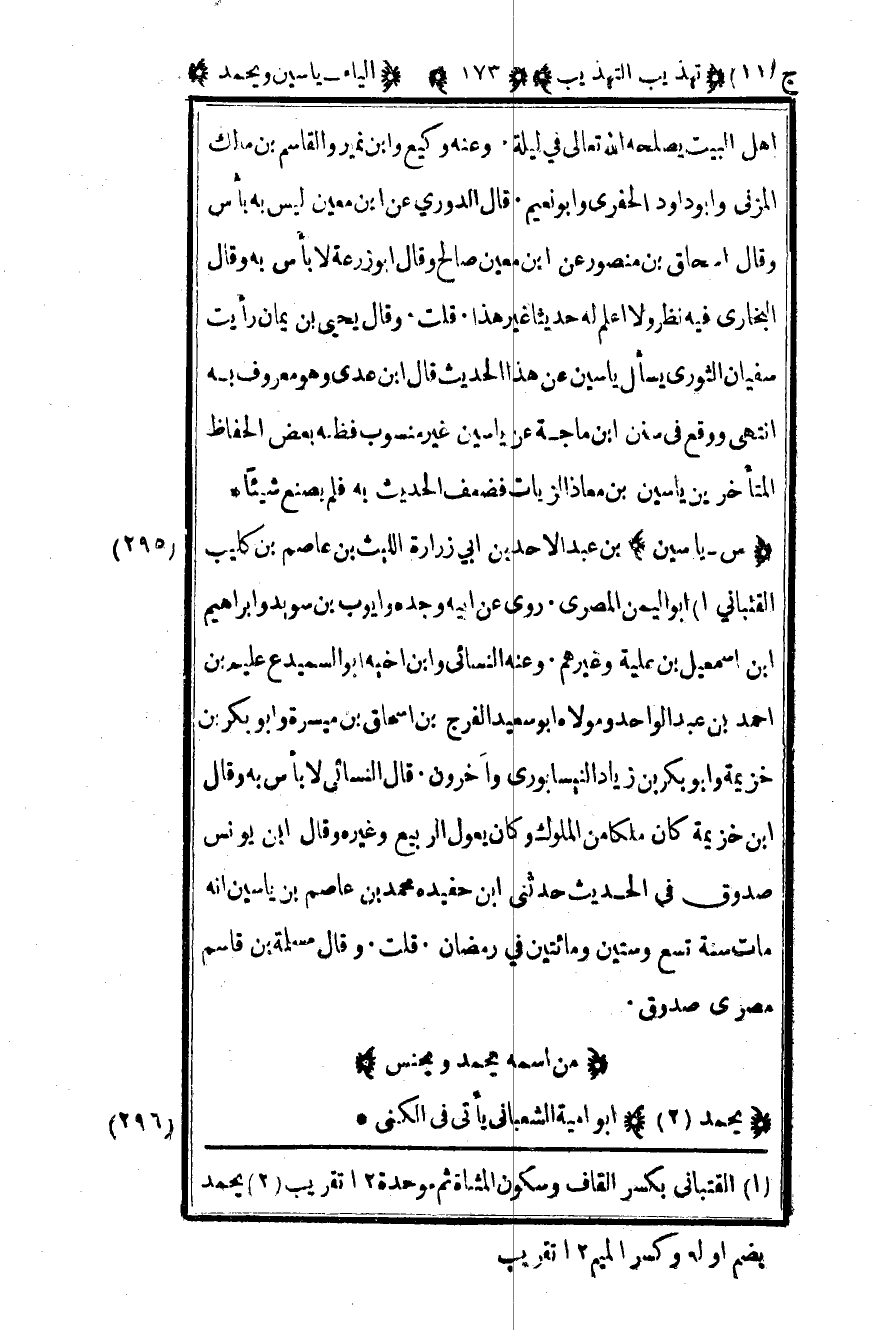 ج (١١) ﴿ تهذيب التهذيب ﴾ ﴿ ١٧٣ ﴾ ﴿ الياء ـ ياسين ويحمد ﴾
اهل البيت يصلحه الله تعالى في ليلة · وعنه وكيع وابن نمير والقاسم بن مالك
المزنى وابوداود الحفرى وابونعيم · قال الدوري عن ابن معين ليس به بأس
وقال اسحاق بن منصور عن ابن معين صالح وقال ابوزرعة لا بأس به وقال
البخارى فيه نظر ولا اعلم له حديثا غير هذا · قلت · وقال يحيى بن يمان رأيت
سفيان الثورى يسأل ياسين عن هذا الحديث قال ابن عدى وهو معروف بـه
انتهى ووقع فى سنن ابن ماجـة عن ياسين غير منسوب فظنه بعض الحفاظ
المتأخرين ياسين بن معاذ الزيات فضعف الحديث به فلم يصنع شيئا *
﴿ س ـ ياسين ﴾ بن عبدالاحد بن ابي زرارة الليث بن عاصم بن كليب (٢٩٥)
القتباني (١) ابواليمن المصرى · روى عن ابيه وجده وايوب بن سويد وابراهيم
ابن اسمعيل بن علية وغيرهم · وعنه النسائى وابن اخيه ابو السميدع عليم بن
احمد بن عبدالواحد ومولاه ابوسعيد الفرج بن اسحاق بن ميسرة وابوبكر بن
خزيمة وابوبكر بن زياد النيسابورى وآخرون · قال النسائى لا بأس به وقال
ابن خزيمة كان ملكا من الملوك وكان يعول الربيع وغيره وقال ابن يونس
صدوق في الحـديث حدثنى ابن حفيده محمد بن عاصم بن ياسين انه
مات سنة تسع وستين ومائتين في رمضان · قلت · وقال مسلمة بن قاسم
مصرى صدوق ·
﴿ من اسمه يحمد و يحنس ﴾
﴿ يحمد (٢) ﴾ ابوامية الشعبانى يأتى فى الكنى * (٢٩٦)
(١) القتبانى بكسر القاف وسكون المثناة ثم موحدة ١٢ تقريب (٢) يحمد
بضم اوله وكسر الميم ١٢ تقريب